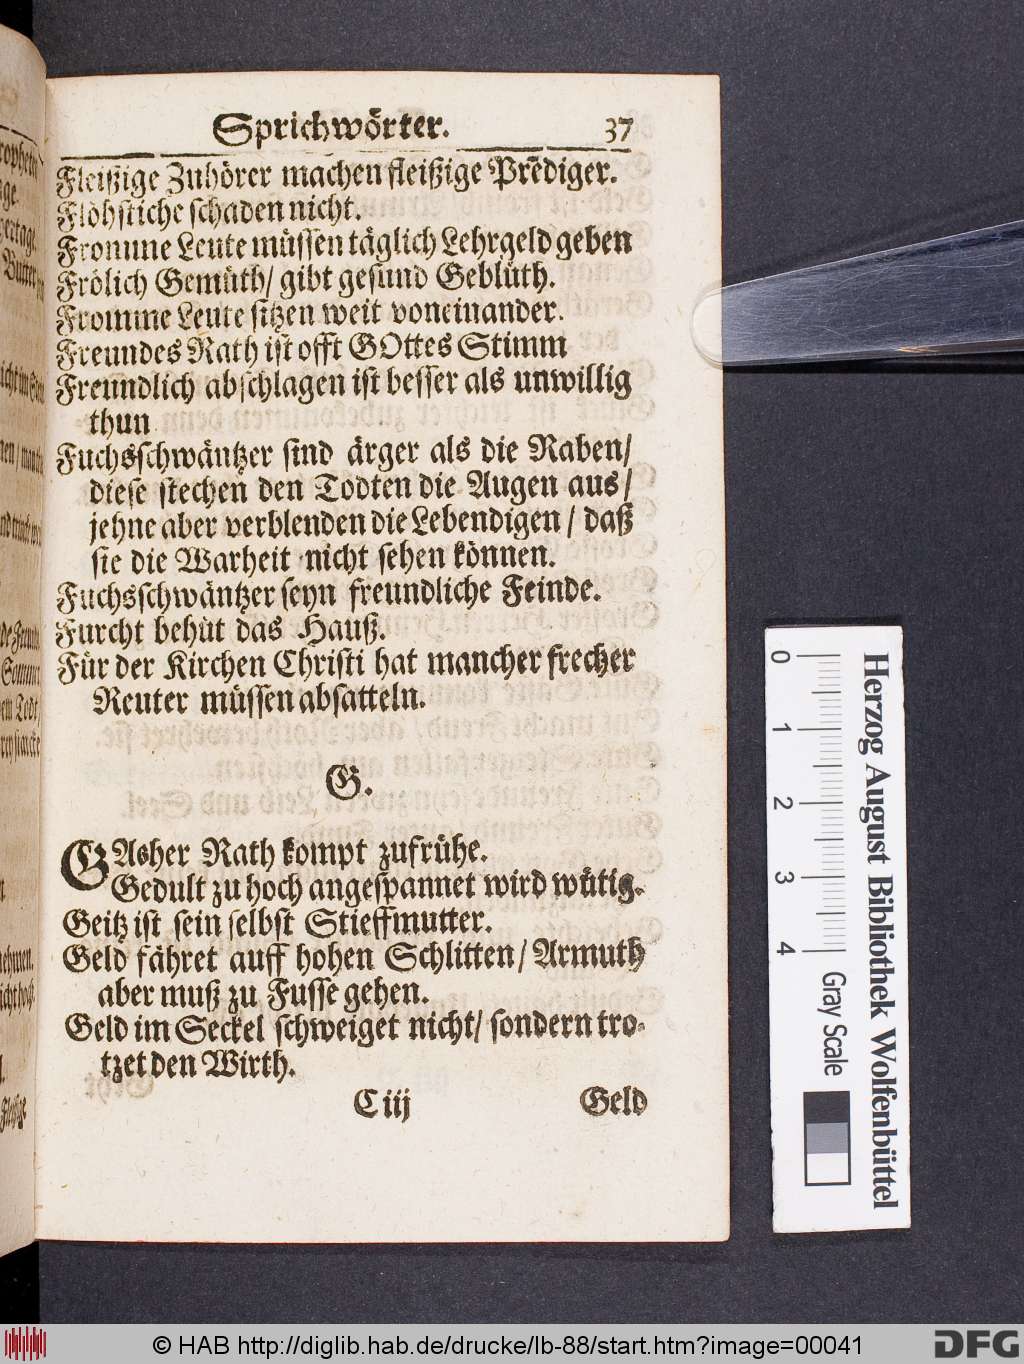 Sprichwörter. 37
Fleißige Zuhörer machen fleißige Prediger.
Flöhstiche schaden nicht.
Fromme Leute müssen täglich Lehrgeld geben
Frölich Gemüth/ gibt gesund Geblüth.
Fromme Leute sitzen weit voneinander.
Freundes Rath ist offt GOttes Stimm
Freundlich abschlagen ist besser als unwillig
thun
Fuchsschwäntzer sind ärger als die Raben/
diese stechen den Todten die Augen aus/
jehne aber verblenden die Lebendigen/ daß
sie die Warheit nicht sehen können.
Fuchsschwäntzer seyn freundliche Feinde.
Furcht behüt das Hauß.
Für der Kirchen Christi hat mancher frecher
Reuter müssen absatteln.
G.
GAsher Rath kompt zufrühe.
Gedult zu hoch angespannet wird wütig.
Geitz ist sein selbst Stieffmutter.
Geld fähret auff hohen Schlitten/ Armuth
aber muß zu Fusse gehen.
Geld im Seckel schweiget nicht/ sondern tro-
tzet den Wirth.
C iij Geld
0 1 2 3 4
Gray Scale
Herzog August Bibliothek Wolfenbüttel
© HAB http://diglib.hab.de/drucke/lb-88/start.htm?image=00041
DFG